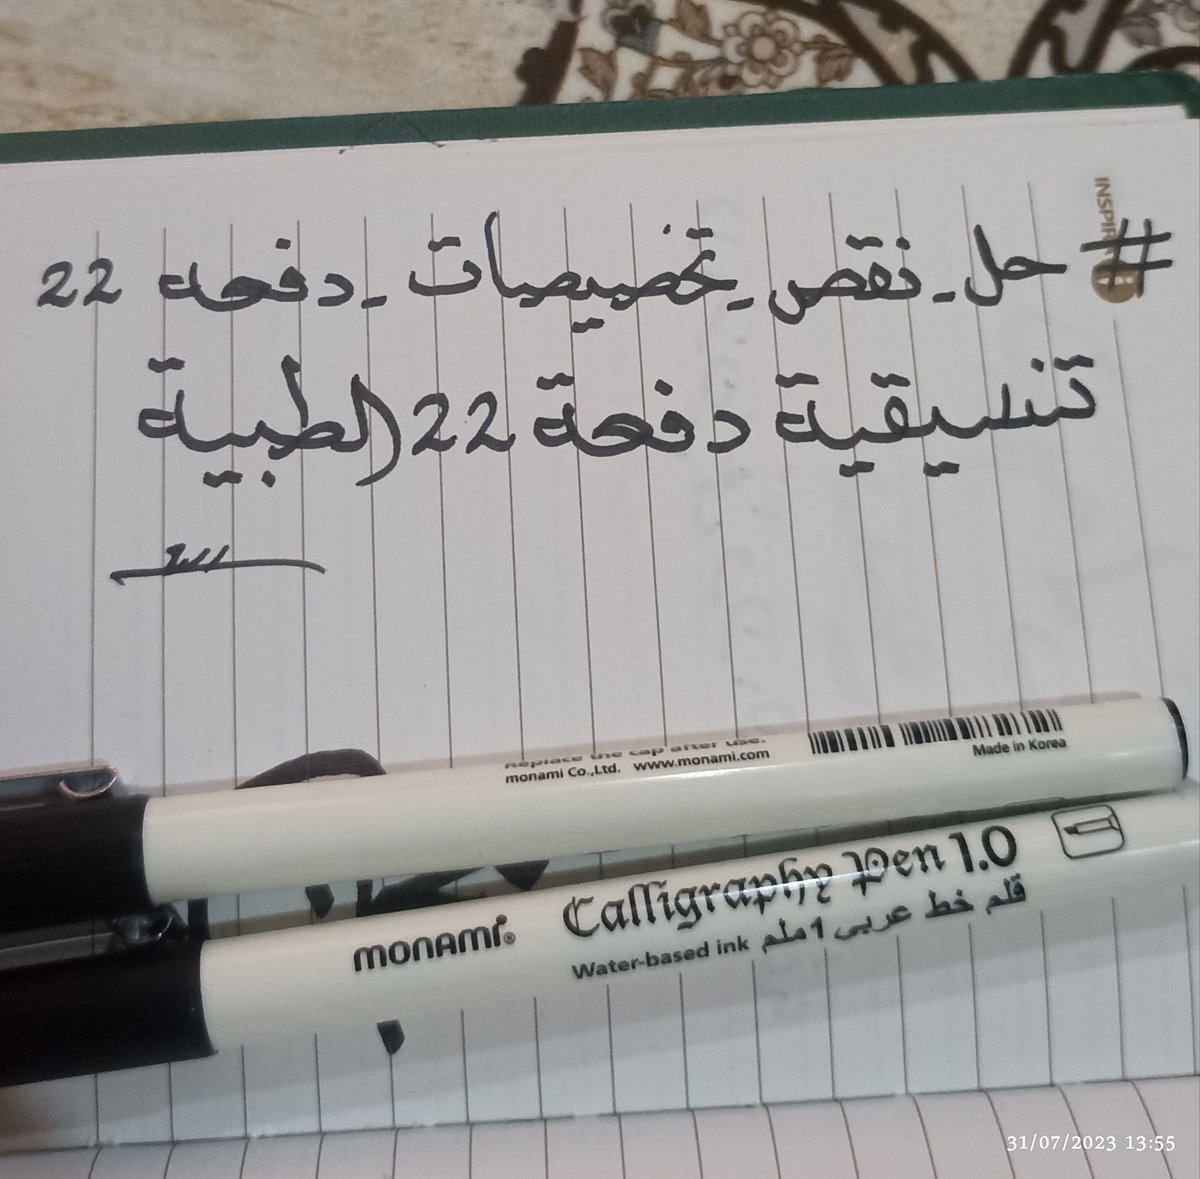 INSPIR
#حل_نقص_تخصيصات_دفعه 22
تنسيقية دفعة 22 الطبية
Replace the cap after use.
monami Co.,Ltd. www.monami.com
Made in Korea
monami® Calligraphy Pen 1.0
Water-based ink قلم خط عربي 1 ملم
31/07/2023 13:55